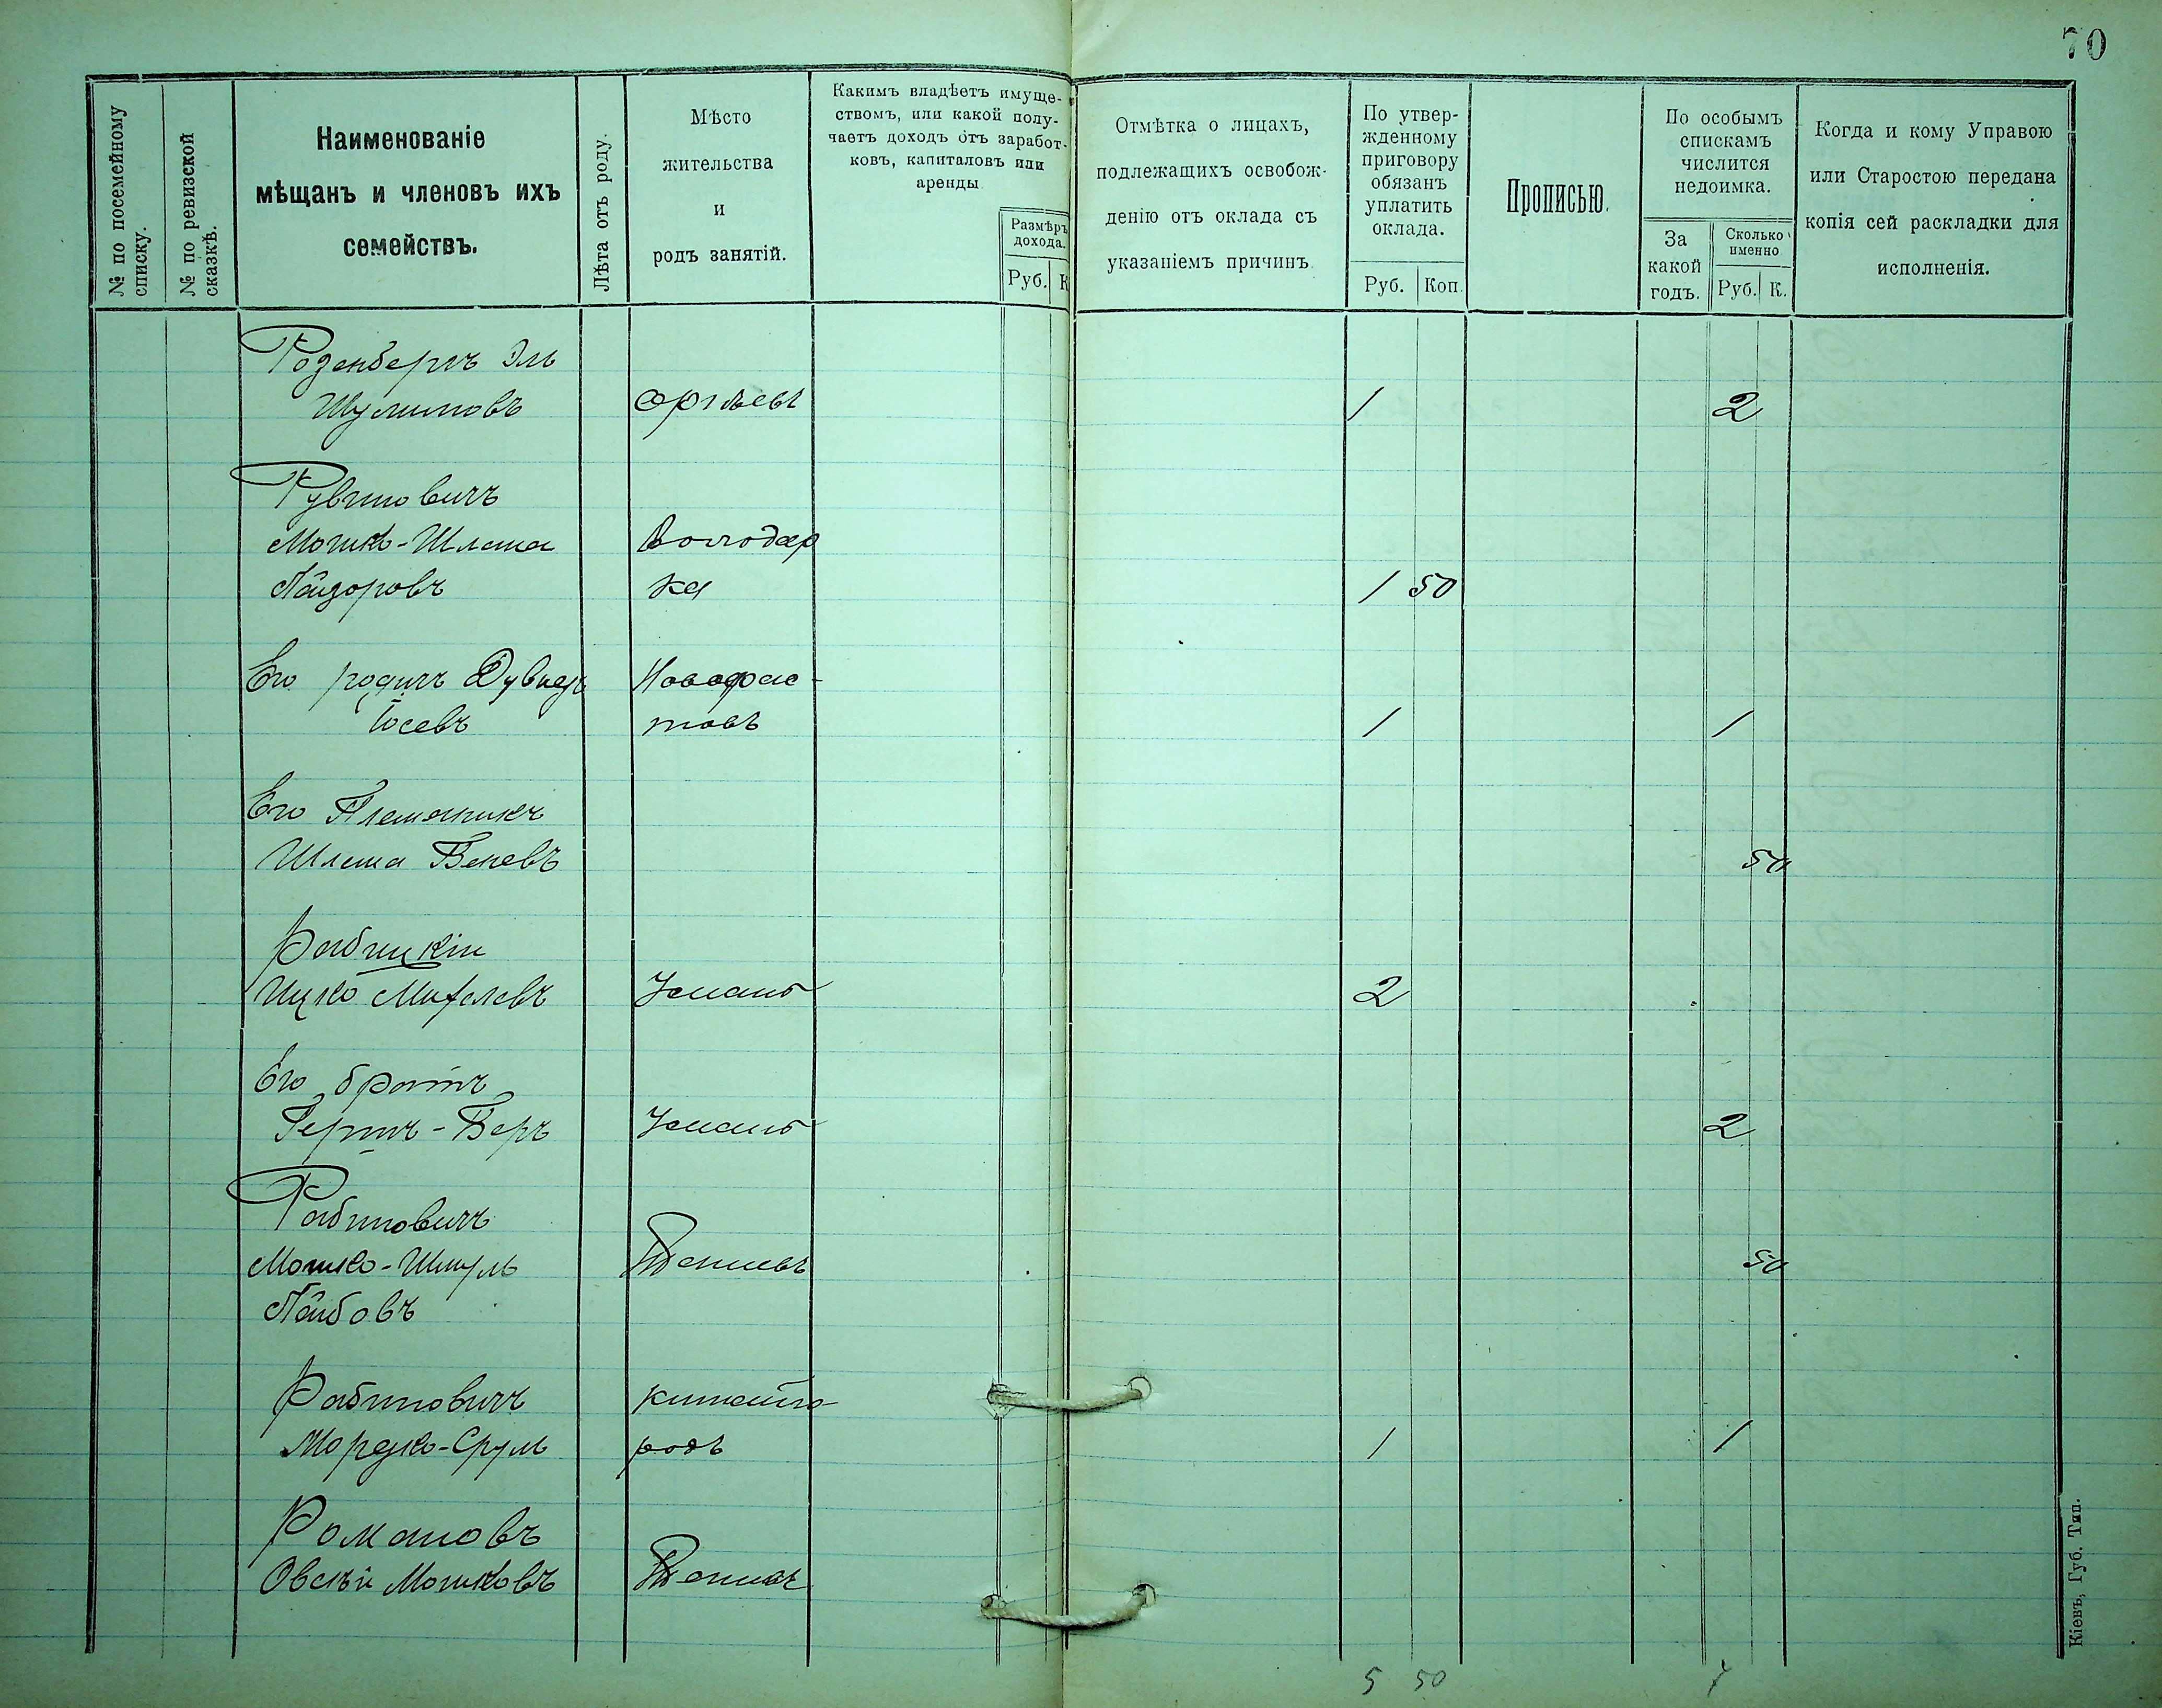 70
№ по посемейному
списку.
№ по ревизской
сказкѣ.
Наименованіе
мѣщанъ и членовъ ихъ
семействъ.
Лѣта отъ роду.
Мѣсто
жительства
и
родъ занятій.
Какимъ владѣетъ имуще-
ствомъ, или какой полу-
чаетъ доходъ отъ заработ-
ковъ, капиталовъ или
аренды.
Размѣръ
дохода.
Руб. К
Отмѣтка о лицахъ,
подлежащихъ освобож-
денію отъ оклада съ
указаніемъ причинъ.
По утвер-
жденному
приговору
обязанъ
уплатить
оклада.
Руб. Коп.
Прописью.
По особымъ
спискамъ
числится
недоимка.
За
какой
годъ.
Сколько
именно
Руб. К.
Когда и кому Управою
или Старостою передана
копія сей раскладки для
исполненія.
Розенбергъ Эль
Шулимовъ 1 2
Рувиновичъ
Мошко-Шлема Володар
Лейзоровъ ка 1 50
Его родичъ Дувидъ Новофас-
Іосевъ товъ 1 1
Его Племяникъ
Шлема 50
Рабицкій
Ицко Михелевъ Умань 2
Его братъ
Герш-Беръ Умань 2
Рабиновичъ
Мошко-Шмуль 50
Лейбовъ
Рабиновичъ Китайго
Мордко-Срулъ родъ 1 1
Романовъ
Овсѣй Мошковъ
5 50 7
Кіевъ, Губ. Тип.